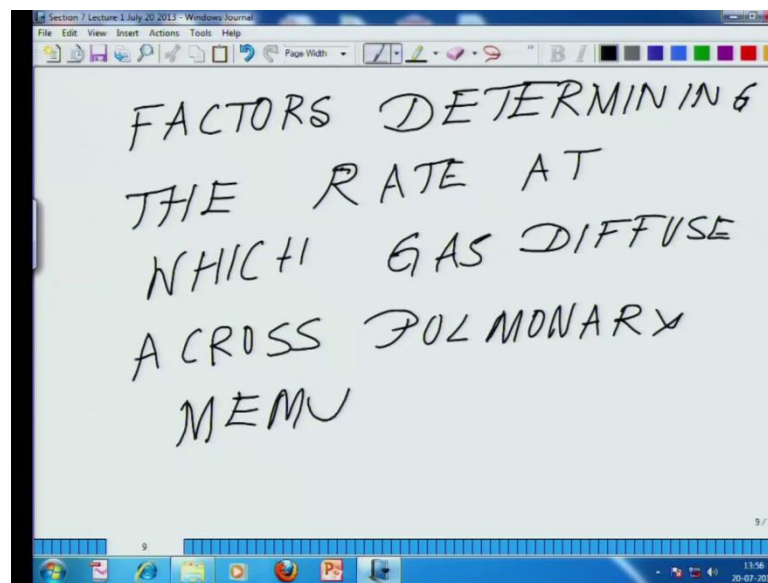 Section 7 Lecture 1 July 20 2013 - Windows Journal
File Edit View Insert Actions Tools Help
Page Width B I
FACTORS DETERMINING
THE RATE AT
WHICH GAS DIFFUSE
ACROSS PULMONARY
MEMU
9 /
9
13:56
20-07-20